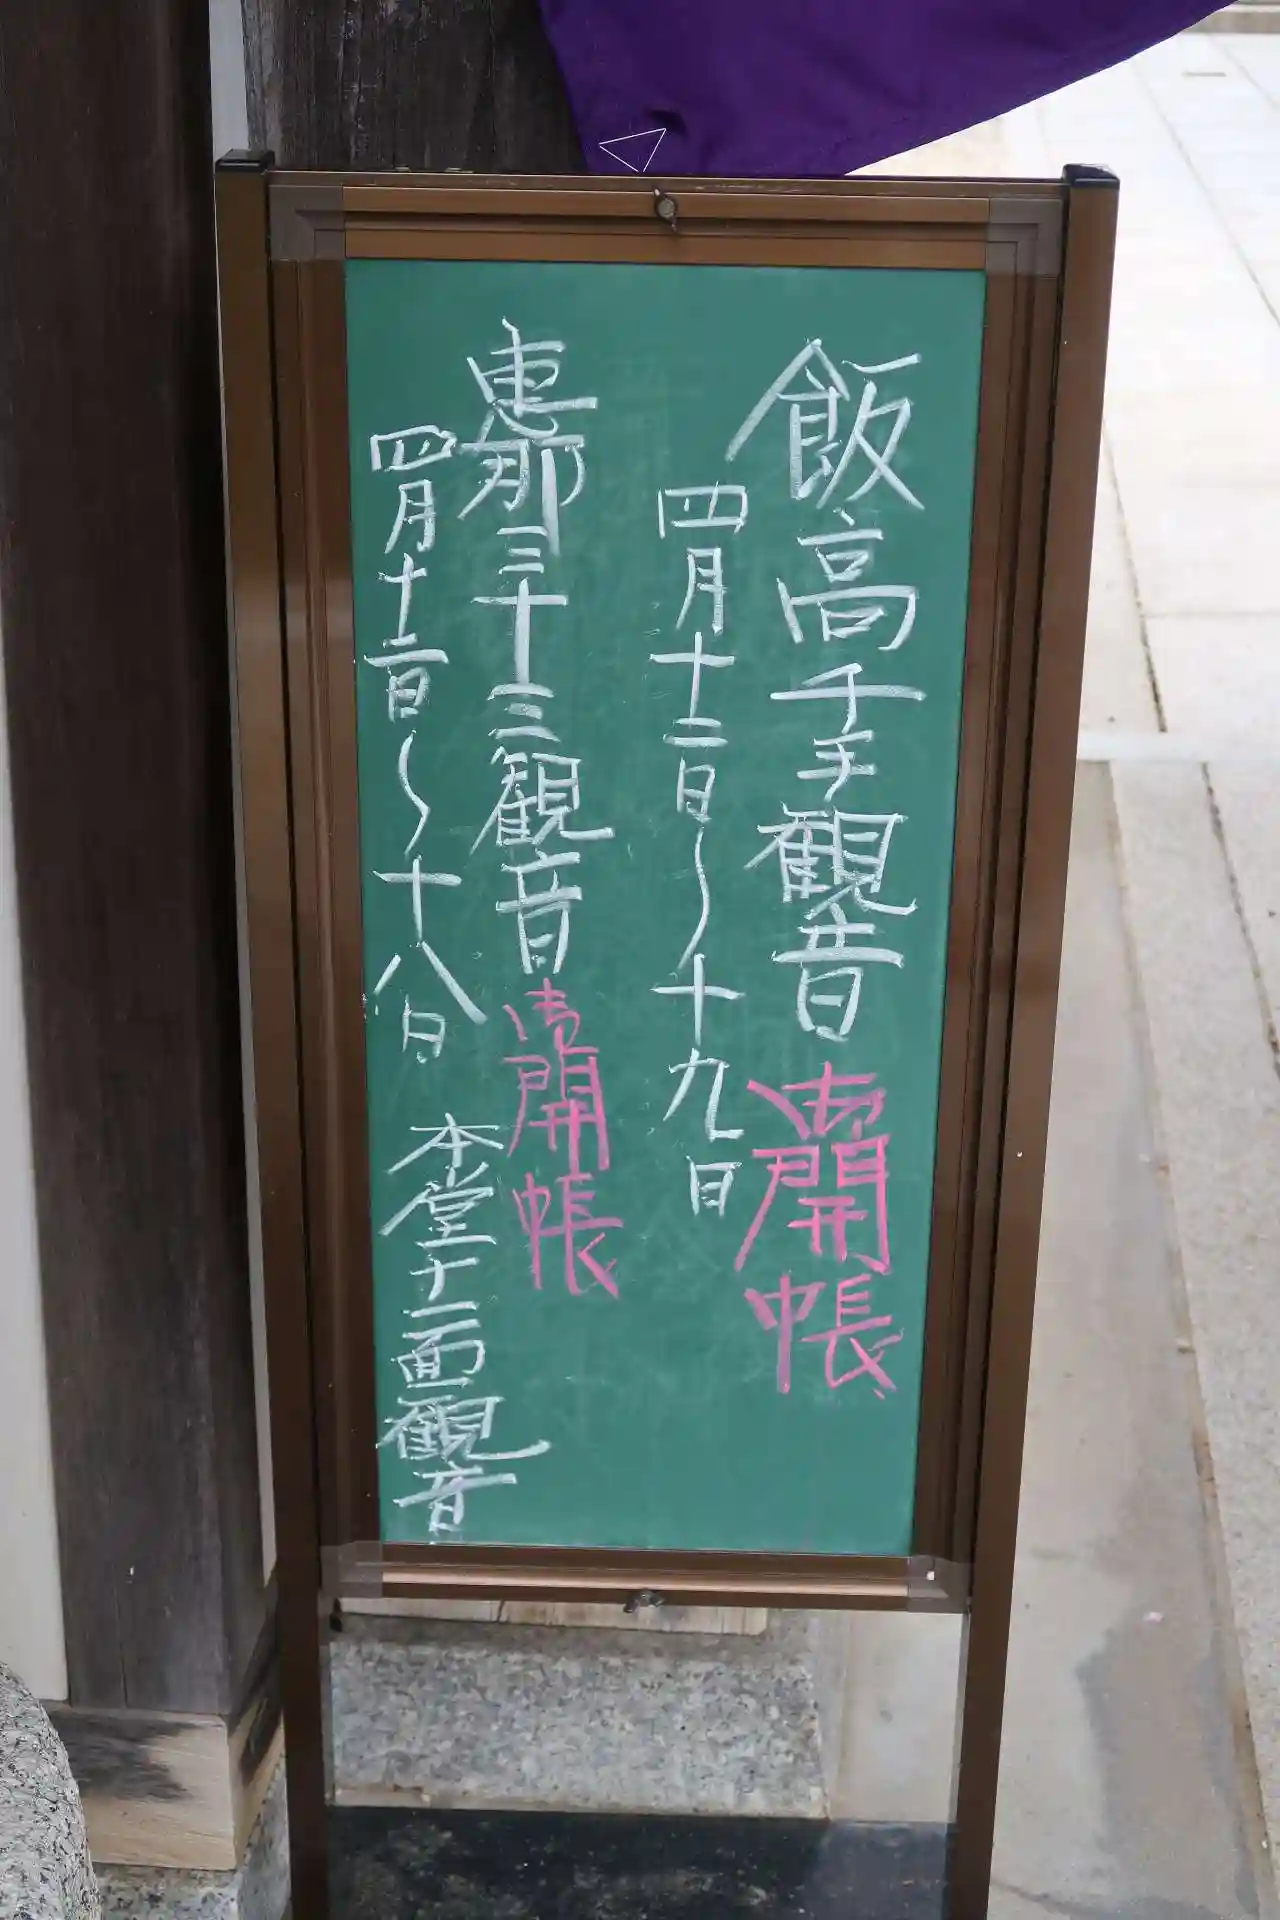 飯高千手観音 御開帳
四月十二日〜十九日
恵那三十三観音 御開帳
四月十二日〜十八日 本堂十一面観音